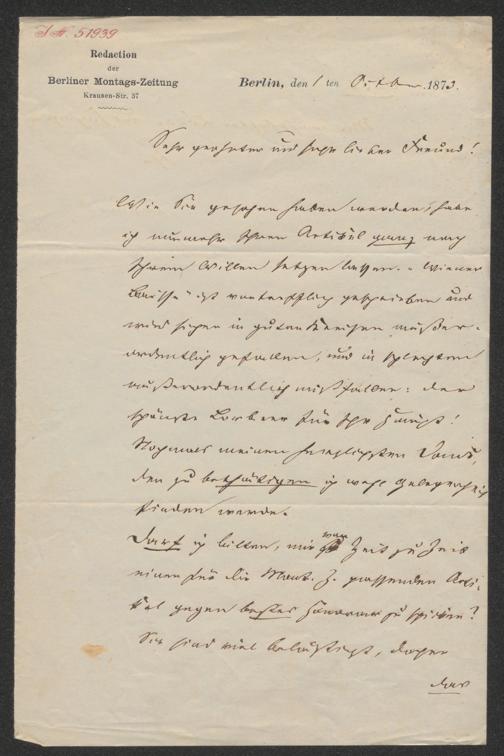 I.N. 51939
Redaction
der
Berliner Montags-Zeitung
Krausen-Str. 37
Berlin, den 1 ten October 1873.
Sehr geehrter und sehr lieber Freund!
Wie Sie gesehen haben werden, habe
ich nunmehr Ihren Artikel ganz nach
Ihrem Willen setzen lassen. „Wiener
Baisse" ist vortrefflich geschrieben und
wird sicher in guten Kreisen außer-
ordentlich gefallen, und in schlechten
außerordentlich mißfallen: der
schönste Lorbeer für Ihr Haupt!
Nochmals meinen herzlichsten Dank,
den zu bethätigen ich wohl Gelegenheit
finden werde.
Darf ich bitten, mir von Zeit zu Zeit
einen für die Mont. Z. passenden Arti-
kel gegen bestes Honorar zu schicken?
Sie sind viel beschäftigt, daher
das